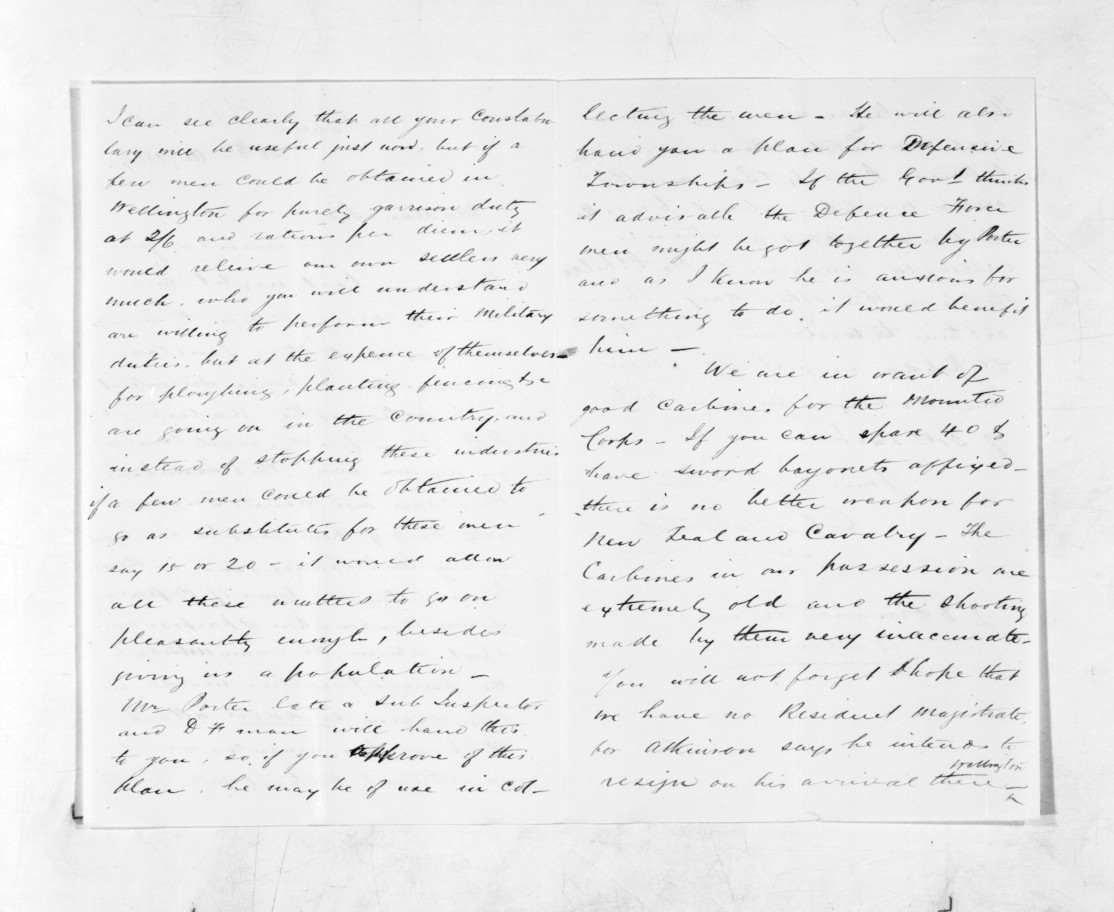 I can see clearly that all your Constabu
lary will be useful just now, but if a
few men could be obtained in
Wellington for purely garrison duty
at 2/6 and rations per diem, it
would releive our own settlers very
much, who you will understand
are willing to perform their Military
duties, but at the expence of themselves -
for ploughing, planting, fencing &c
are going on in the country, and
instead of stopping these industries
if a few men could be obtained to
go as substitutes for these men
say 15 or 20 - it would allow
all these matters to go on
pleasantly enough, besides
giving us a population -
Mr Porter late a Sub Inspector
and D F man will hand this
to you, so, if you approve of this
plan, he may be of use in col-
lecting the men - He will also
hand you a plan for Defensive
Townships - If the Govt thinks
it advisable the Defence Force
men might be got together by Porter
and as I know he is anxious for
something to do, it would benefit
him -
We are in want of
good Carbines for the Mounted
Corps - If you can spare 40 &
have sword bayonets affixed -
there is no better weapon for
New Zealand Cavalry - The
Carbines in our possession are
extremely old and the shooting
made by them very inaccurate -
You will not forget I hope that
we have no Resident Magistrate,
for Atkinson says he intends to
resign on his arrival there -
Wellington